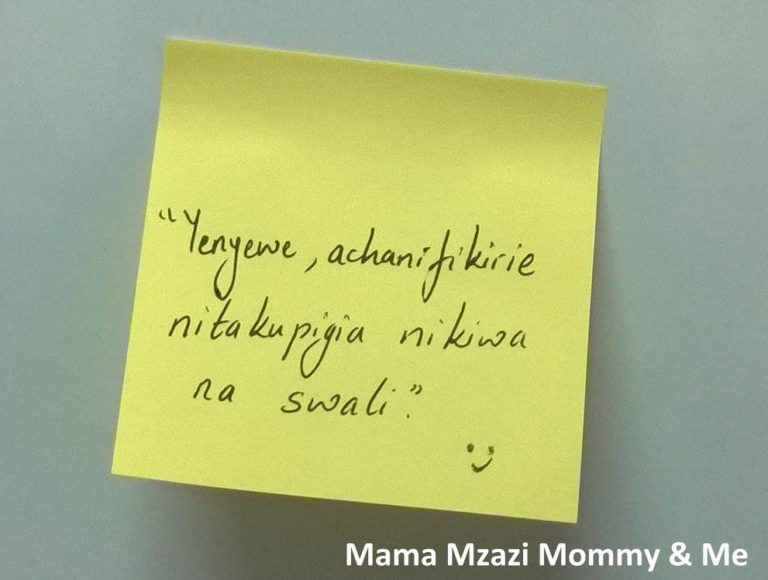 “Yenyewe, achanifikirie
nitakupigia nikiwa
na swali”.
Mama Mzazi Mommy & Me